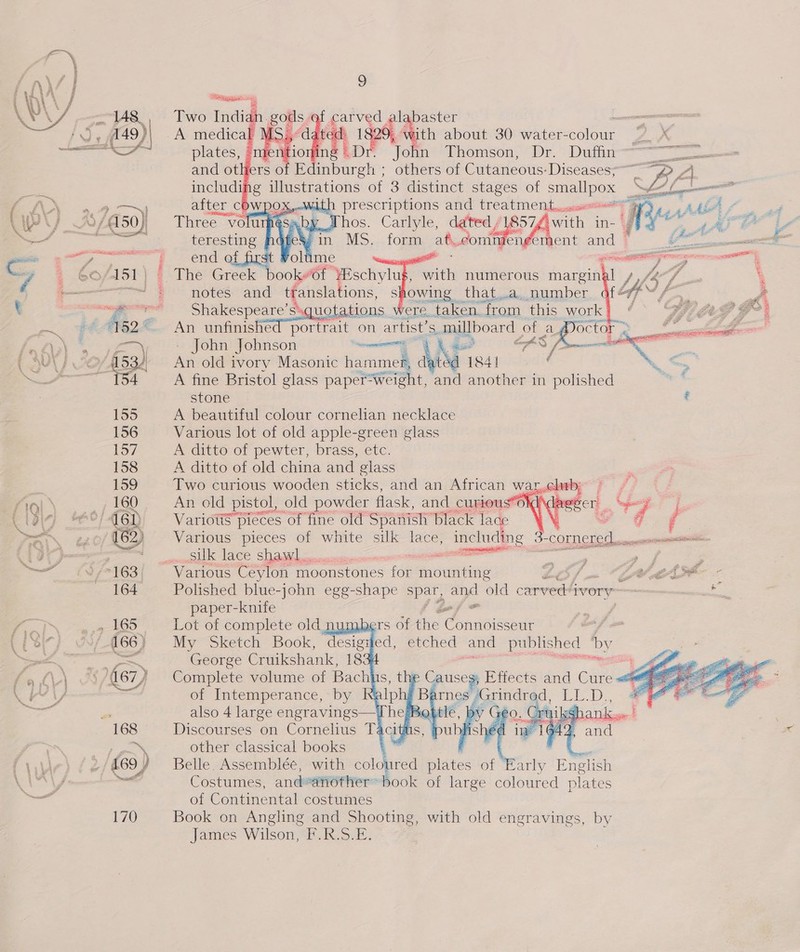 9
148 Two Indian gods of carved alabaster
149 A medical MS., dated 1829, with about 30 water-colour
plates, mentioning Dr. John Thomson, Dr. Duffin
and others of Edinburgh ; others of Cutaneous Diseases,
including illustrations of 3 distinct stages of smallpox
after cowpox, with prescriptions and treatment
150 Three volumes by Thos. Carlyle, dated 1857, with in-
teresting notes in MS. form at commencement and
end of first volume
60/ 151 The Greek book of Æschylus, with numerous marginal
notes and translations, showing that a number of
Shakespeare's quotations were taken from this work
152 An unfinished portrait on artist's millboard of a Doctor
John Johnson
153 An old ivory Masonic hammer, dated 1841
154 A fine Bristol glass paper-weight, and another in polished
stone
155 A beautiful colour cornelian necklace
156 Various lot of old apple-green glass
157 A ditto of pewter, brass, etc.
158 A ditto of old china and glass
159 Two curious wooden sticks, and an African war club
160 An old pistol, old powder flask, and curious old dagger
161 Various pieces of fine old Spanish black lace
162 Various pieces of white silk lace, including 3-cornered
silk lace shawl
163 Various Ceylon moonstones for mounting
164 Polished blue-john egg-shape spar, and old carved ivory
paper-knife
165 Lot of complete old numbers of the Connoisseur
166 My Sketch Book, designed, etched and published by
George Cruikshank, 1834
167 Complete volume of Bachus, the Causes, Effects and Cure
of Intemperance, by Ralph Barnes Grindrod, LL.D.,
also 4 large engravings—The Bottle, by Geo. Cruikshank
168 Discourses on Cornelius Tacitus, published in 1642, and
other classical books
169 Belle Assemblée, with coloured plates of Early English
Costumes, and another book of large coloured plates
of Continental costumes
170 Book on Angling and Shooting, with old engravings, by
James Wilson, F.R.S.E.